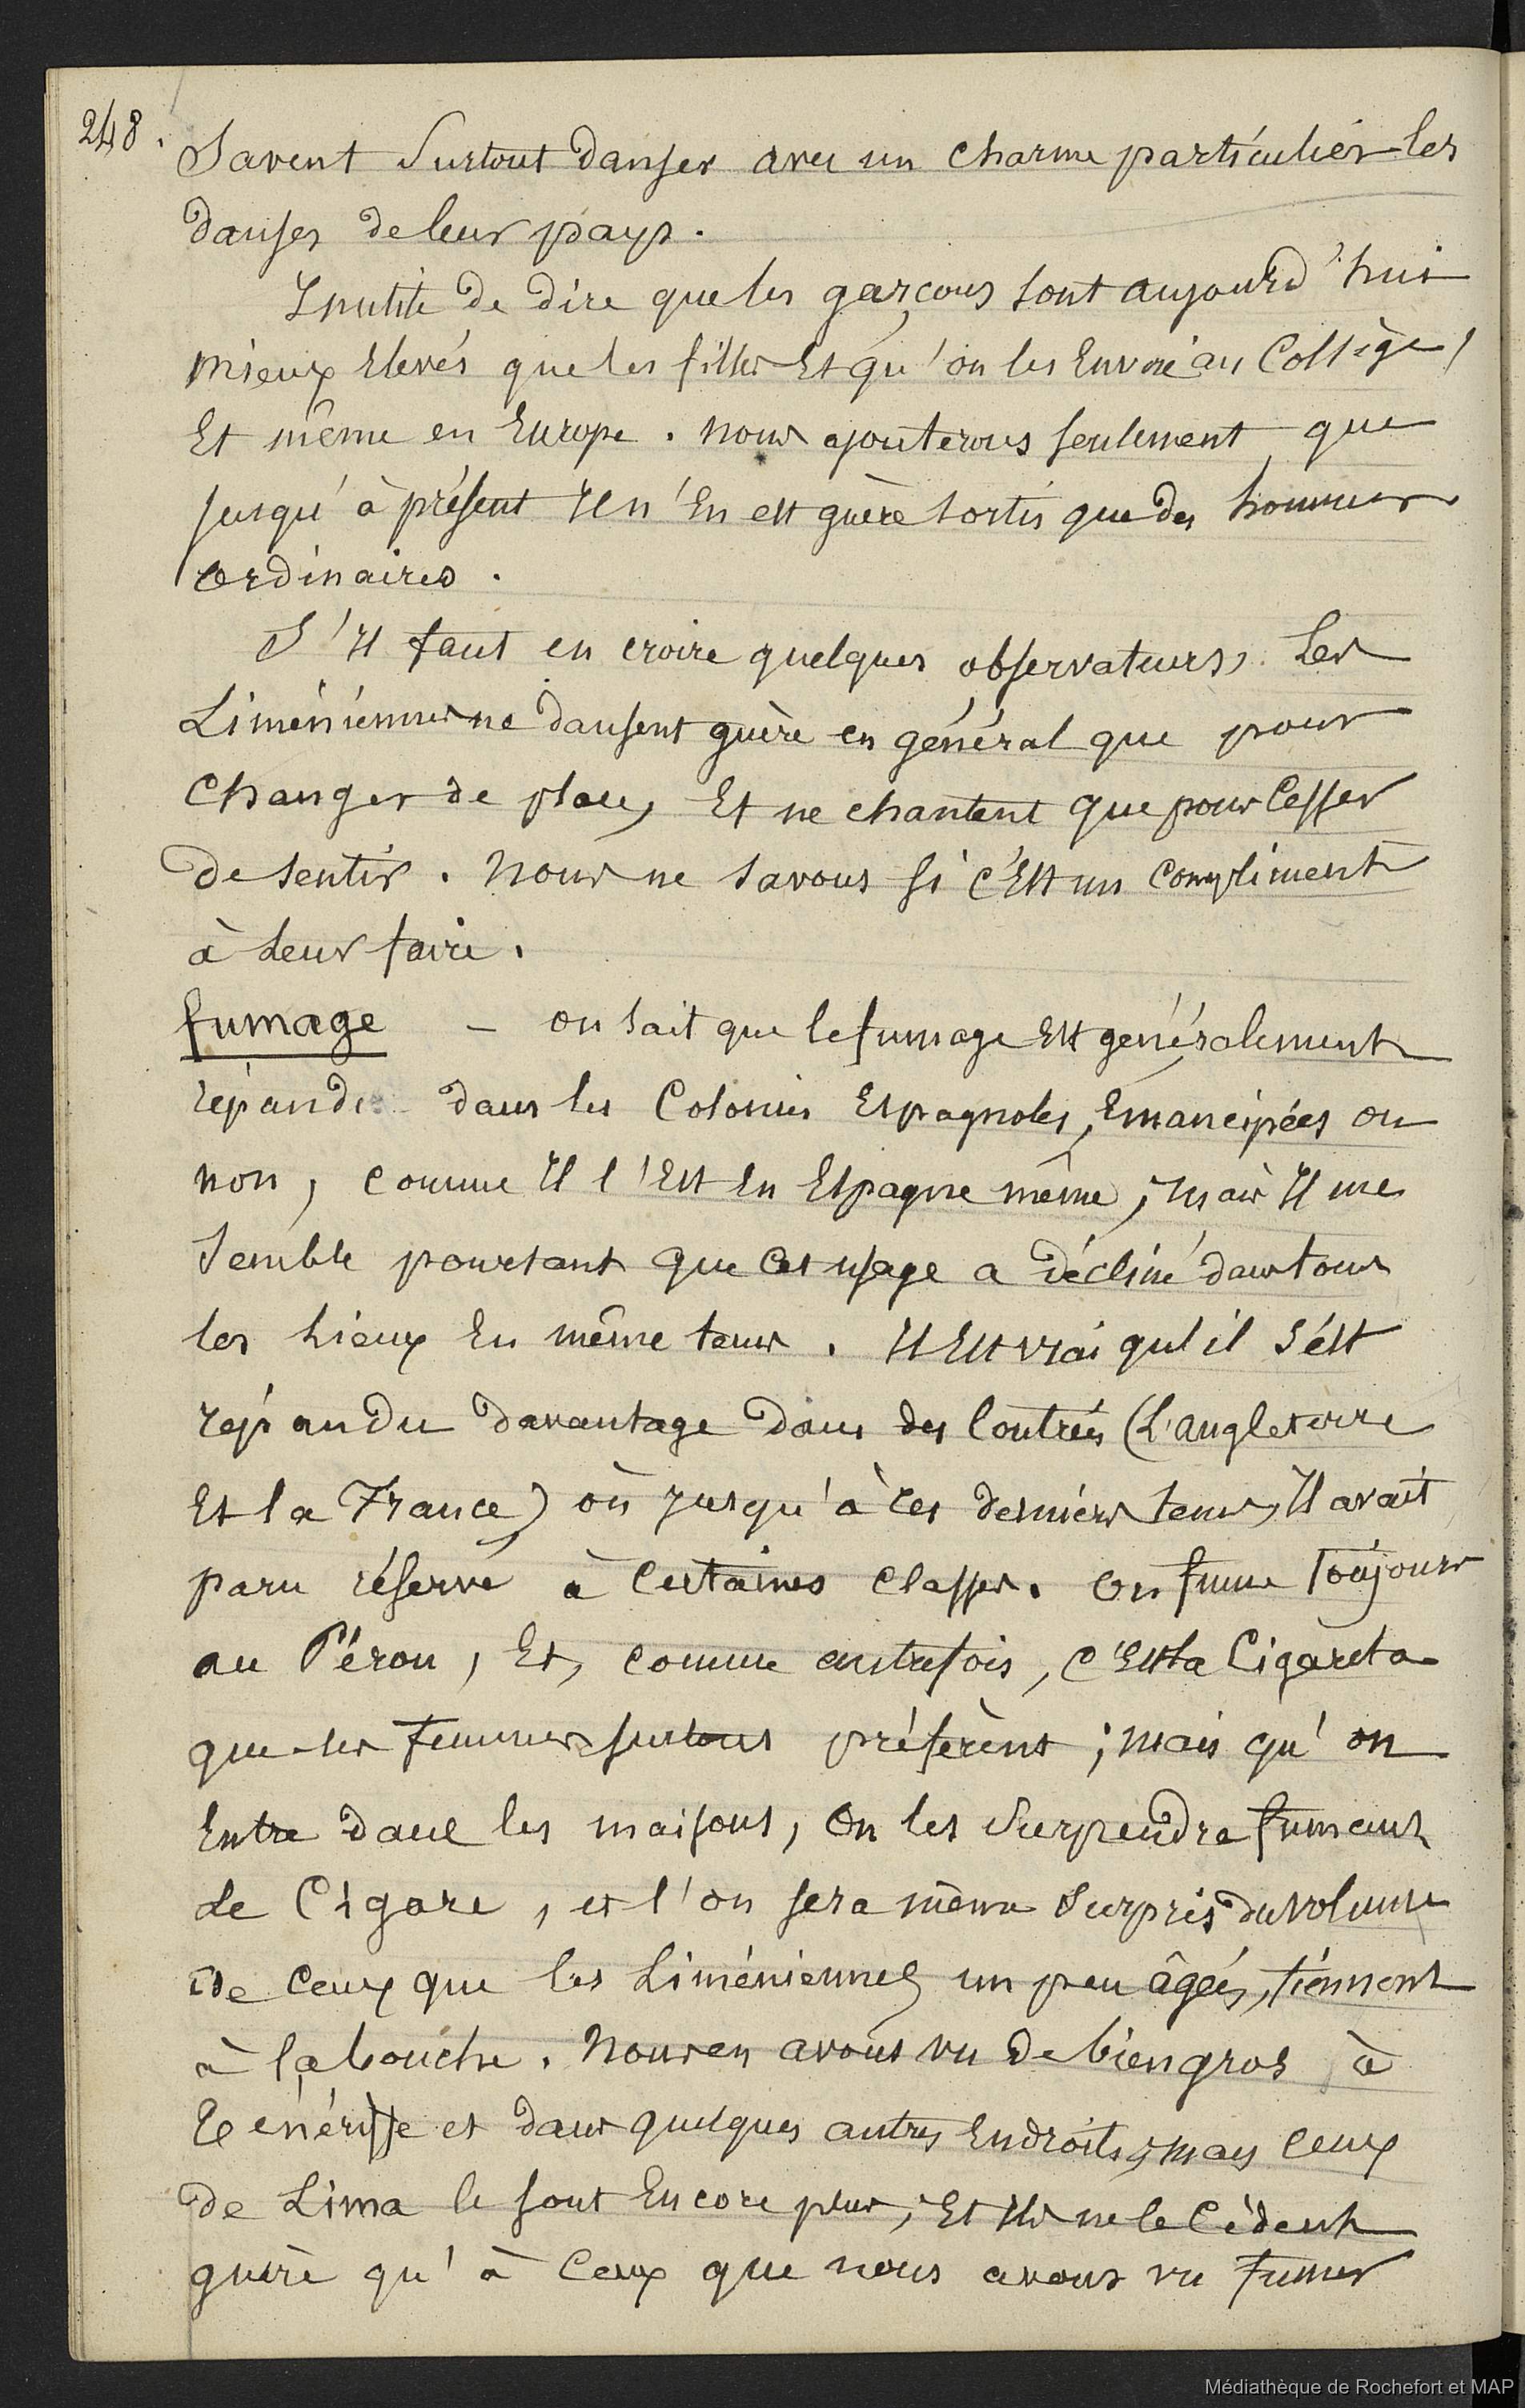 248.
Savent Surtout danser avec un charme particulier les
danses de leur pays.
Inutile de dire que les garçons sont aujourd'hui
mieux élevés que les filles Et qu'on les Envoie au Collège,
Et même en Europe. nous ajouterons seulement que
jusqu'à présent Il n'En est guère sortis que des hommes
ordinaires.
S'Il faut en croire quelques observateurs, Les
Liméniennes ne dansent guère en général que pour
Changer de place, Et ne chantent que pour Cesser
de sentir. Nous ne savons si c'Est un compliment
à Leur faire.
fumage – on sait que le fumage Est généralement
répandu dans les Colonies Espagnoles, Emancipées ou
non, comme Il l'Est En Espagne même ; mais Il me
Semble pourtant que Cet usage a décliné dans tous
les Lieux En même tems. Il Est vrai qu'il s'est
répandu davantage dans des Contrées (L'angleterre
Et la France) où jusqu'à ces derniers tems, Il avait
paru réservé à Certaines classes. on fume Toujours
au Pérou, Et, comme autrefois, c'Est la Cigareta
que les femmes surtout préfèrent ; mais qu'on
Entre dans les maisons, On les Surprendra fumant
Le Cigare, et l'on sera même Surpris du volume
de Ceux que les Liméniennes un peu âgées, tiennent
à la bouche. Nous en avons vu de bien gros à
Ténériffe et dans quelques autres Endroits, mais Ceux
de Lima le sont Encore plus ; Et Ils ne le Cèdent
guère qu'à Ceux que nous avons vu fumer
Médiathèque de Rochefort et MAP